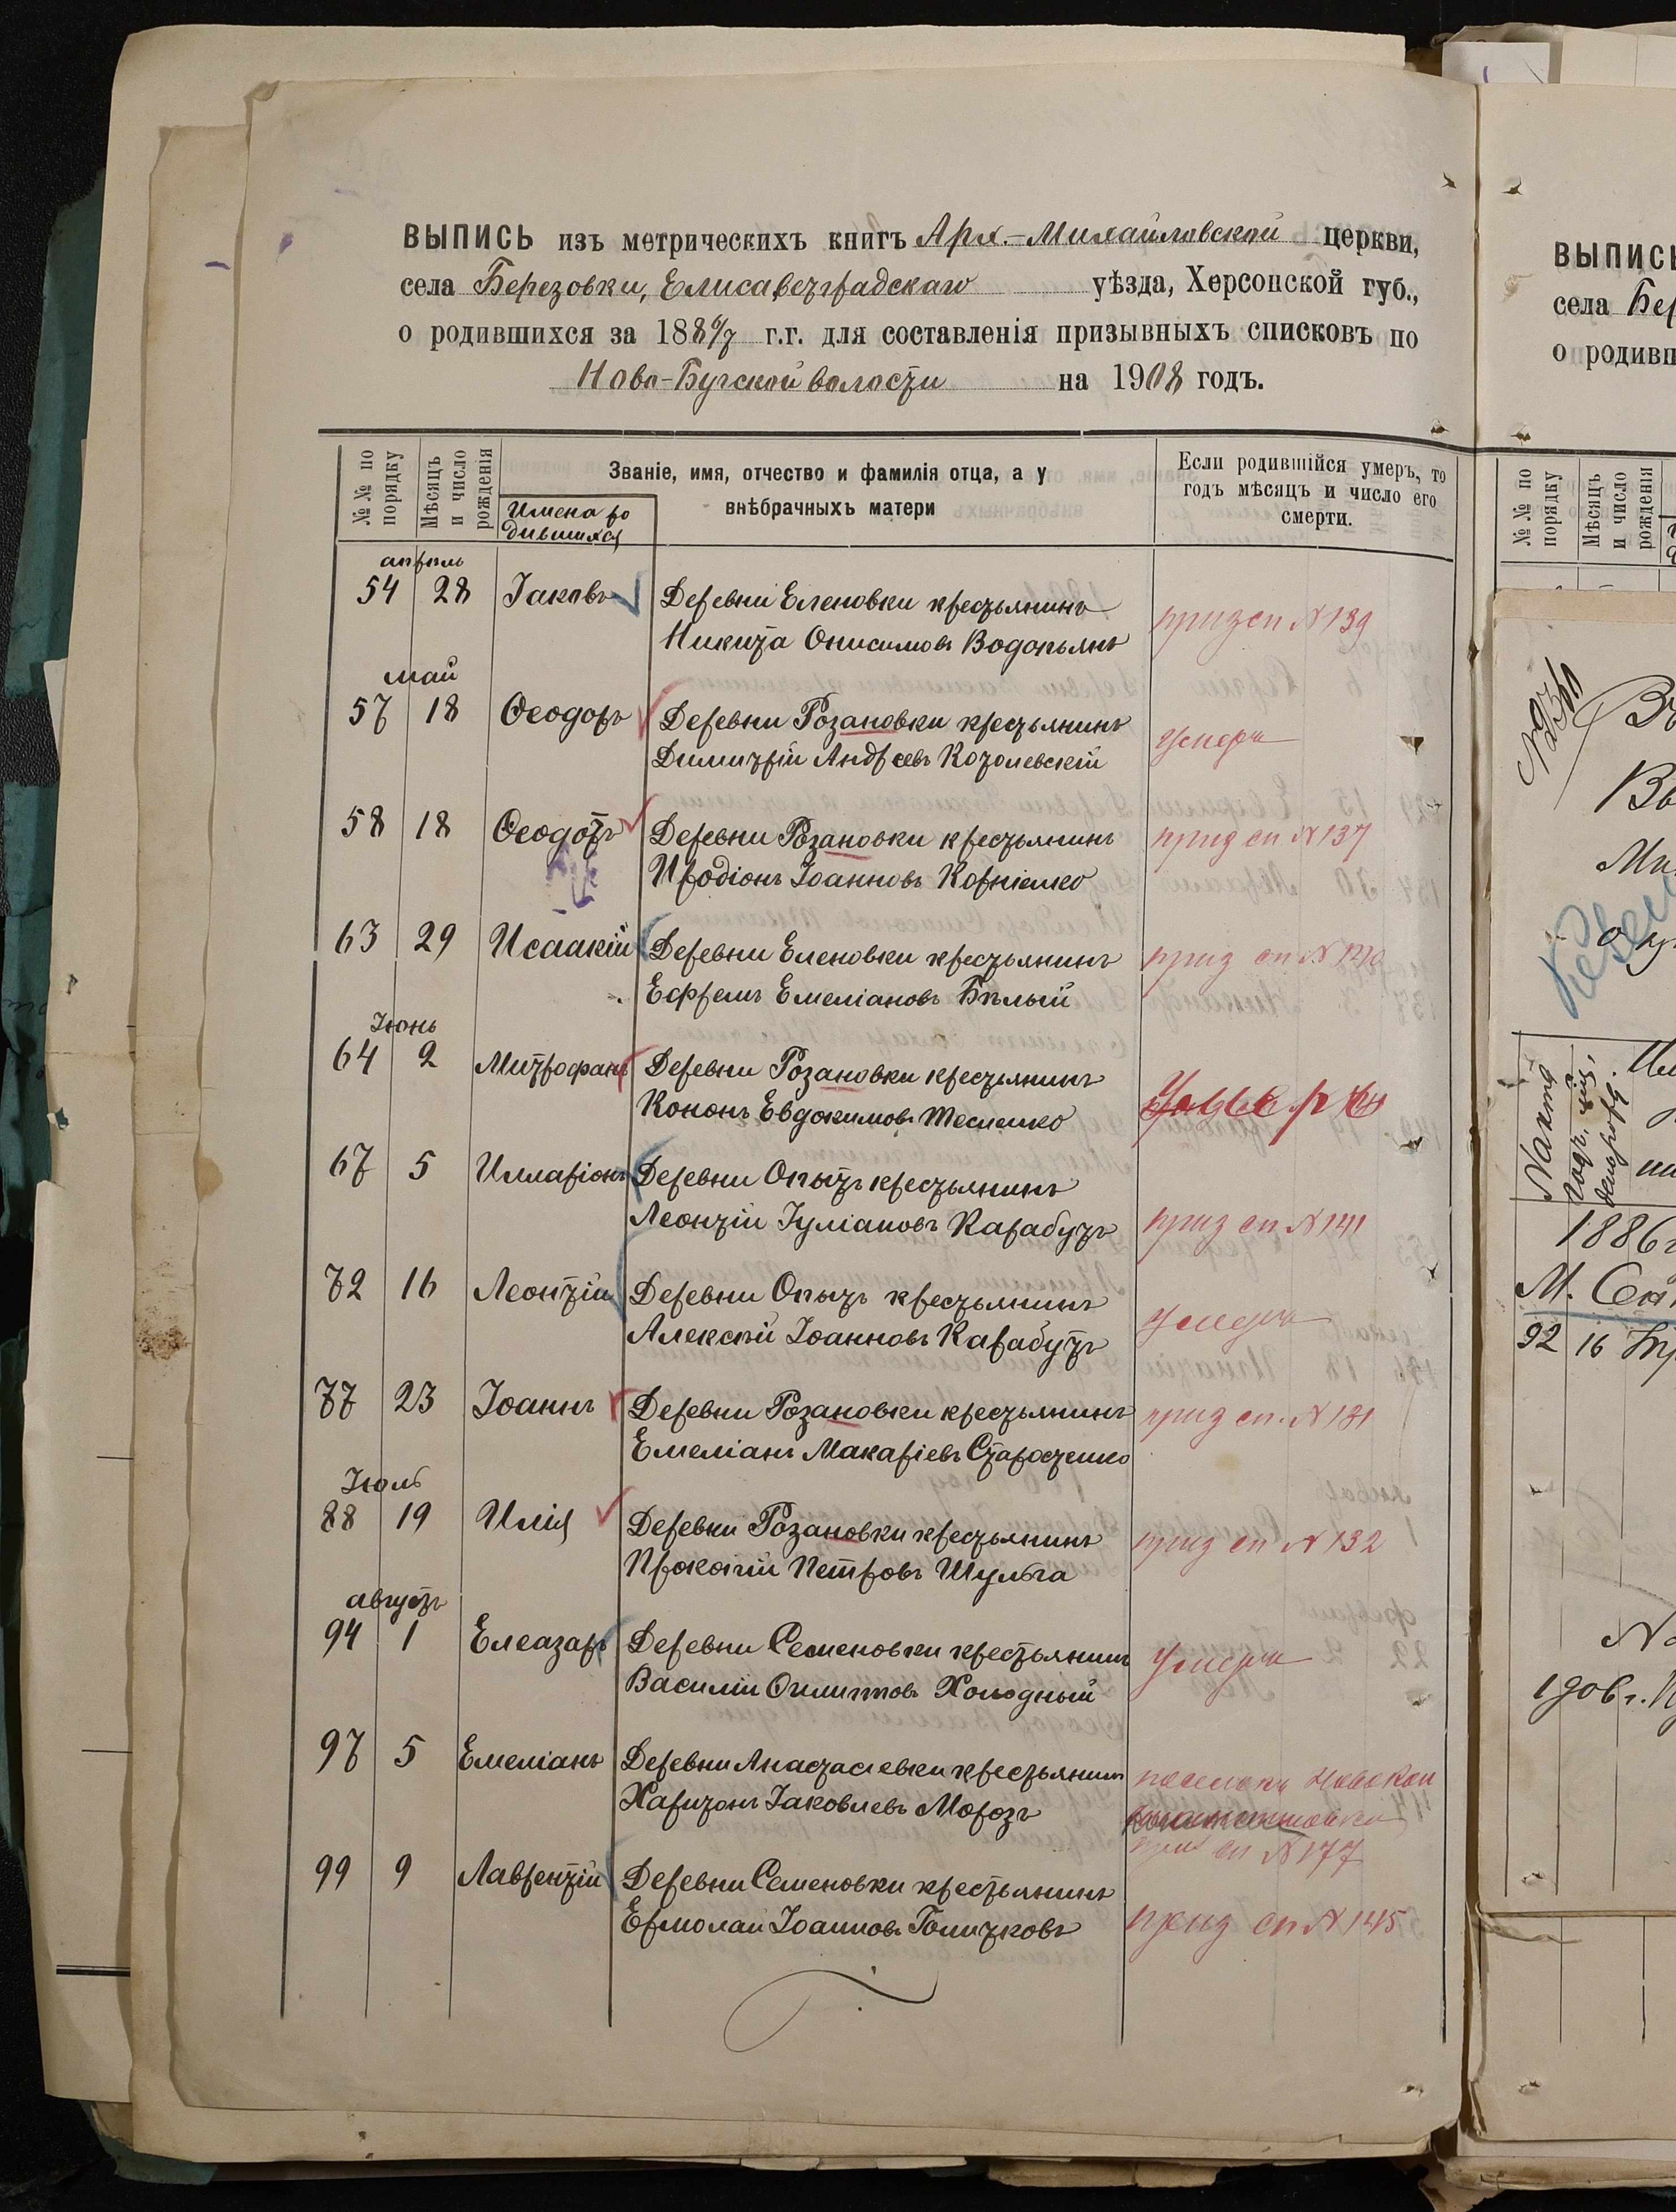 ВЫПИСЬ изъ метрическихъ книгъ Арх.-Михайловской церкви,
села Березовки, Елисаветградскаго уѣзда, Херсонской губ.,
о родившихся за 1886/7 г.г. для составленія призывныхъ списковъ по
Ново-Бугской волости на 1908 годъ.
№№ по порядку
Мѣсяцъ и число рожденія
Имена родившихся
Званіе, имя, отчество и фамилія отца, а у
внѣбрачныхъ матери
Если родившійся умеръ, то
годъ мѣсяцъ и число его
смерти.
апрѣль
54 28 Іаковъ Деревни Еленовки крестьянинъ
Никита Онисимовъ Водопьянъ
приз сп № 139
май
57 18 Ѳеодоръ Деревни Розановки крестьянинъ
Димитрій Андреевъ Козолевскій
умеръ
58 18 Ѳеодотъ Деревни Розановки крестьянинъ
Иродіонъ Іоанновъ Корніенко
приз сп № 137
63 29 Исаакій Деревни Еленовки крестьянинъ
Ефремъ Емеліановъ Бѣлый
приз сп № 140
Іюнь
64 2 Митрофанъ Деревни Розановки крестьянинъ
Кононъ Евдокимовъ Тесленко
67 5 Илларіонъ Деревни Опытъ крестьянинъ
Леонтій Іуліановъ Карабутъ
приз сп № 141
72 16 Леонтій Деревни Опытъ крестьянинъ
Алексѣй Іоанновъ Карабутъ
умеръ
77 23 Іоаннъ Деревни Розановки крестьянинъ
Емеліанъ Макаріевъ Старостенко
приз сп. № 131
Іюль
88 19 Илія Деревни Розановки крестьянинъ
Прокопій Петровъ Шульга
приз сп № 132
августъ
94 1 Елеазаръ Деревни Семеновки крестьянинъ
Василій Филипповъ Холодный
умеръ
97 5 Емеліанъ Деревни Анастасіевки крестьянинъ
Харитонъ Іаковлевъ Морозъ
сп № 177
99 9 Лаврентій Деревни Семеновки крестьянинъ
Ермолай Іоанновъ Голитковъ
приз сп № 145
ВЫПИСЬ
села
о родивш
№№ по порядку
Мѣсяцъ и число рожденія
1886г
92 16
1906 г.